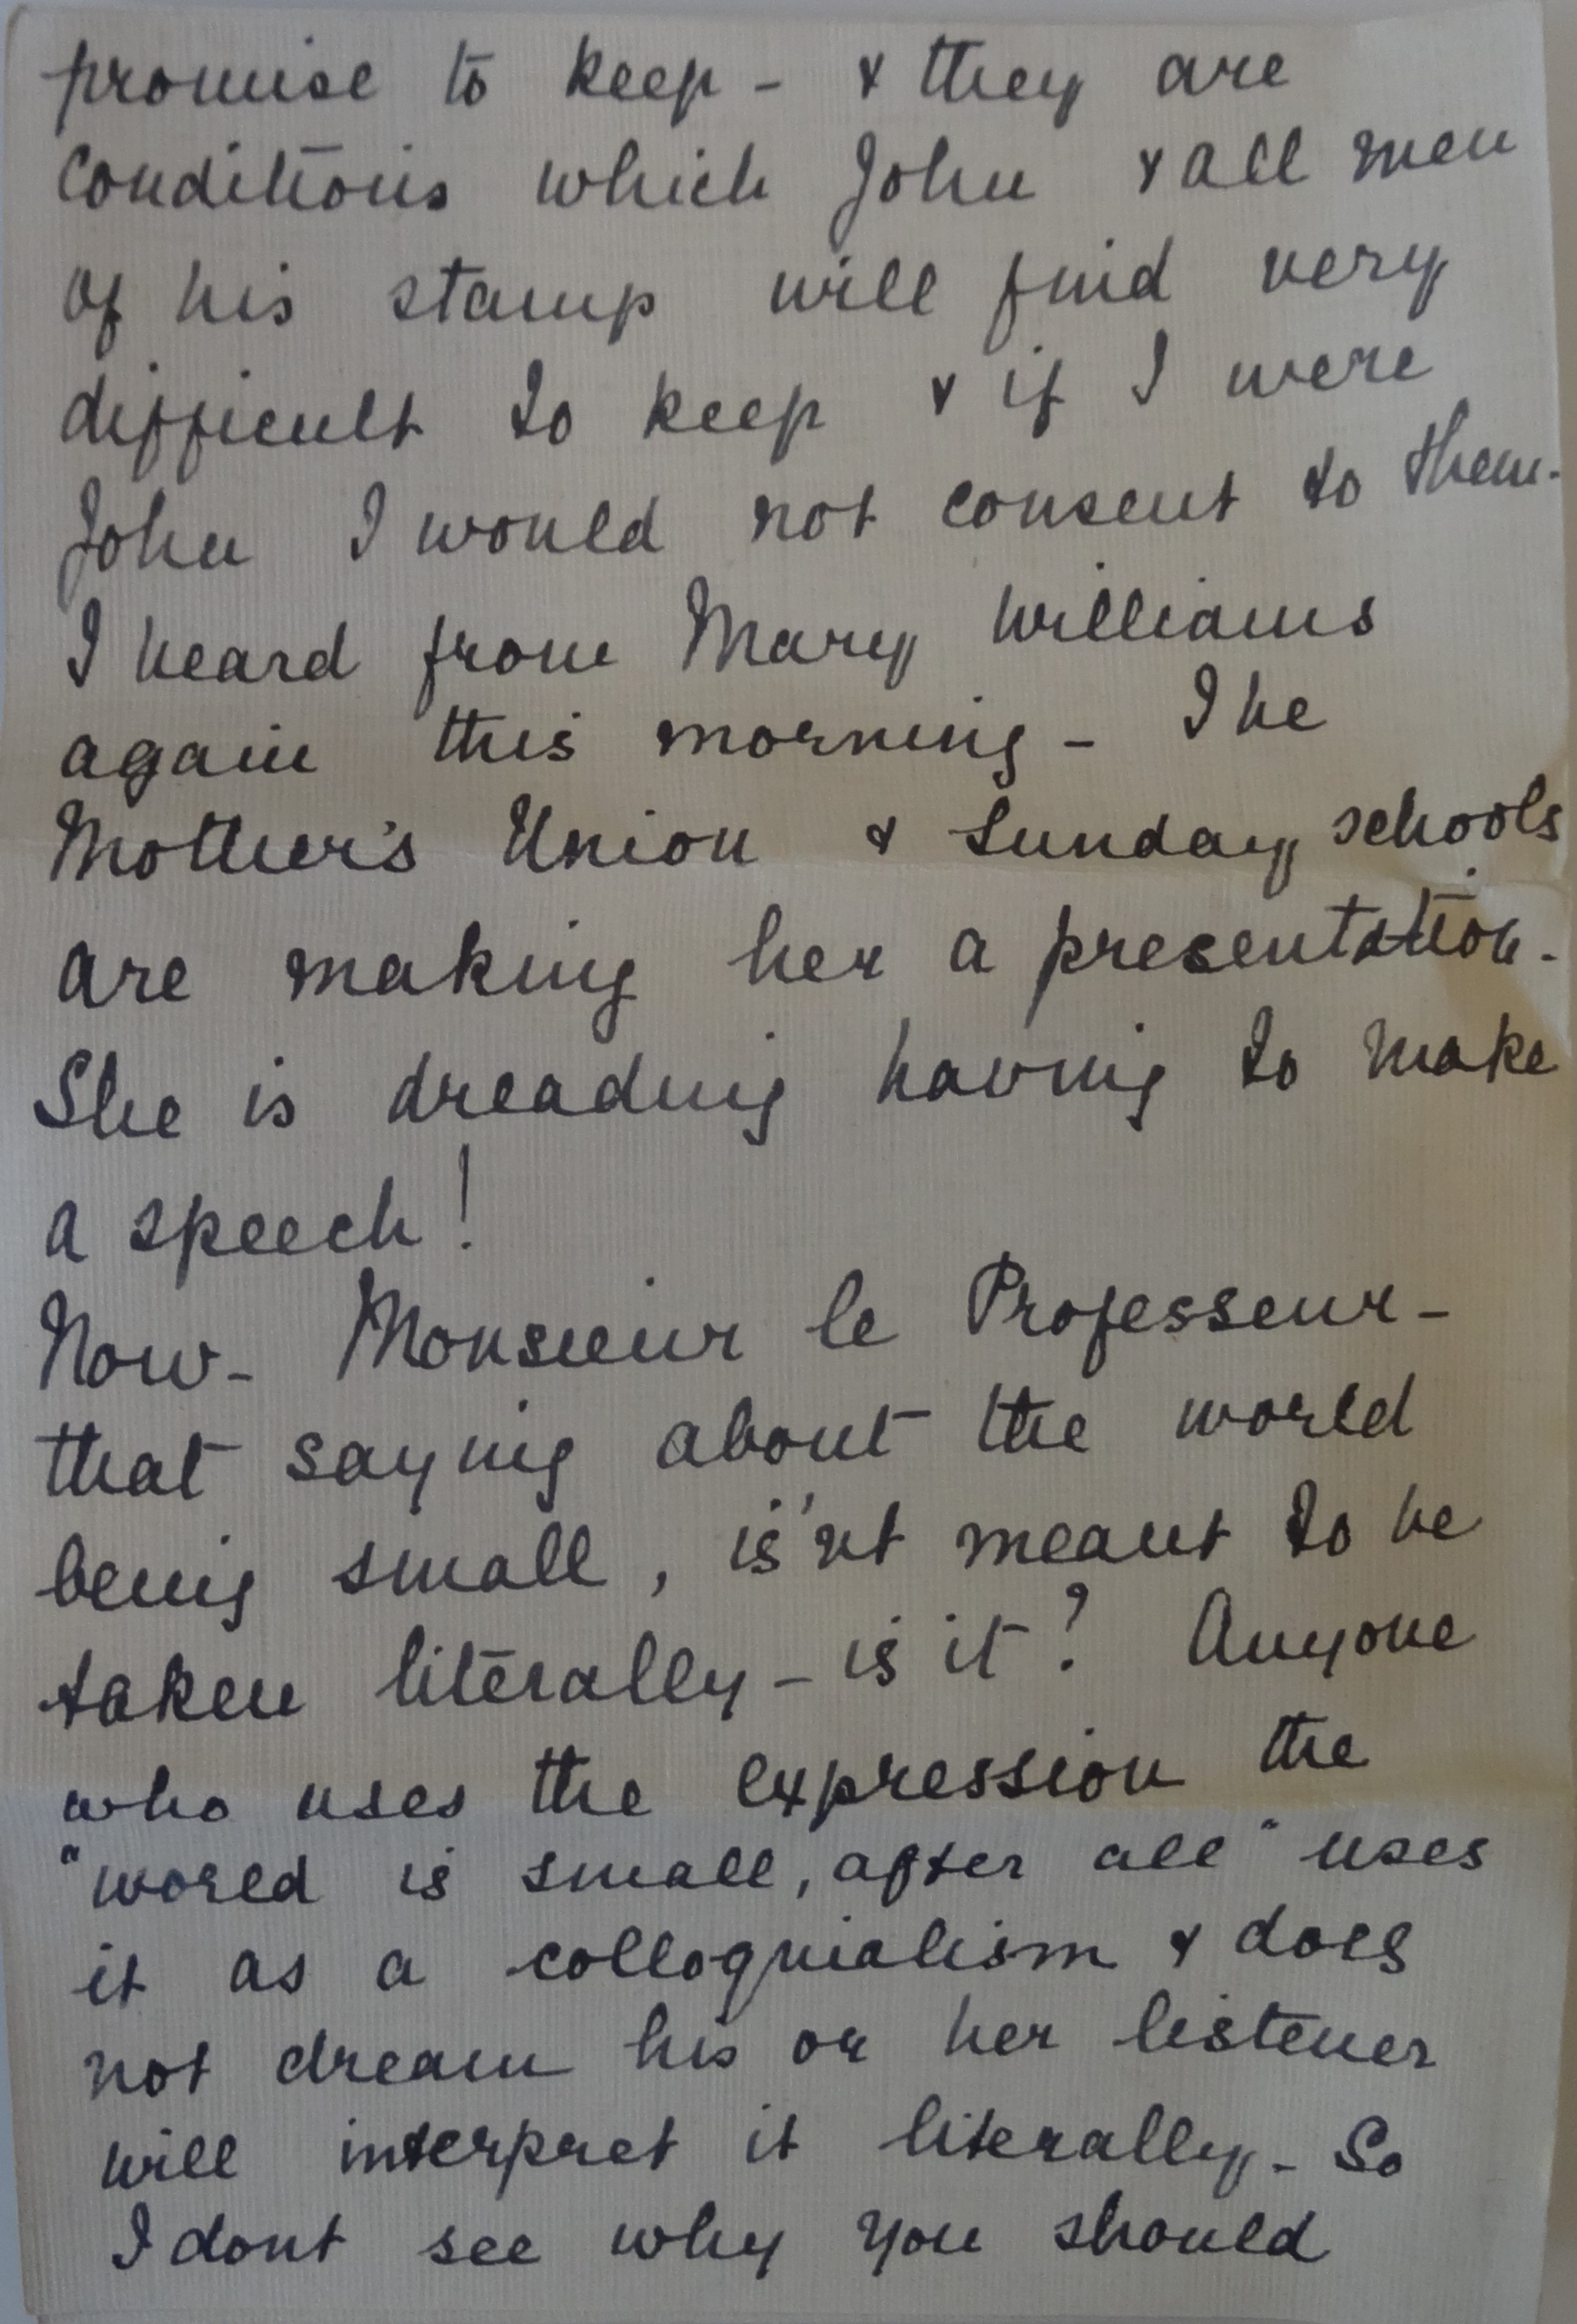 promise to keep - & they are
conditions which John & all men
of his stamp will find very
difficult to keep & if I were
John I would not consent to them.
I heard from Mary Williams
again this morning - The
Mother's Union & Sunday schools
are making her a presentation.
She is dreading having to make
a speech!
Now - Monsieur le Professeur -
that saying about the world
being small, is'nt meant to be
taken literally - is it? Anyone
who uses the expression the
"world is small, after all" uses
it as a colloquialism & does
not dream his or her listener
will interpret it literally - So
I dont see why you should